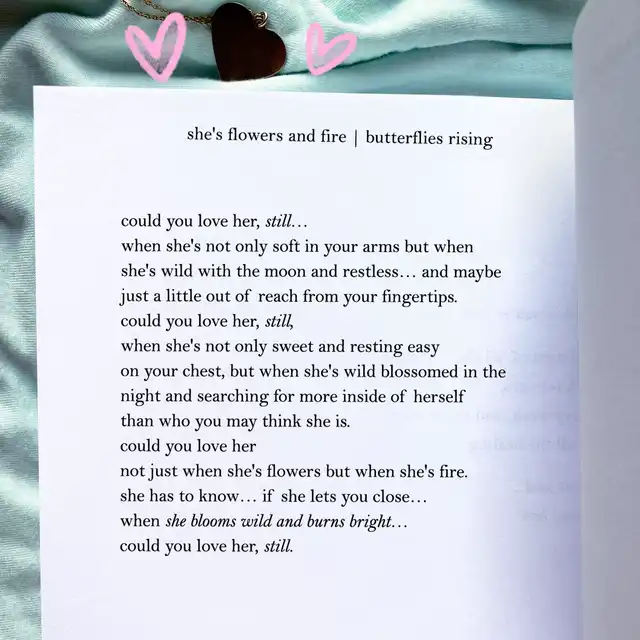 she's flowers and fire | butterflies rising
could you love her, still...
when she's not only soft in your arms but when
she's wild with the moon and restless... and maybe
just a little out of reach from your fingertips.
could you love her, still,
when she's not only sweet and resting easy
on your chest, but when she's wild blossomed in the
night and searching for more inside of herself
than who you may think she is.
could you love her
not just when she's flowers but when she's fire.
she has to know... if she lets you close...
when she blooms wild and burns bright...
could you love her, still.